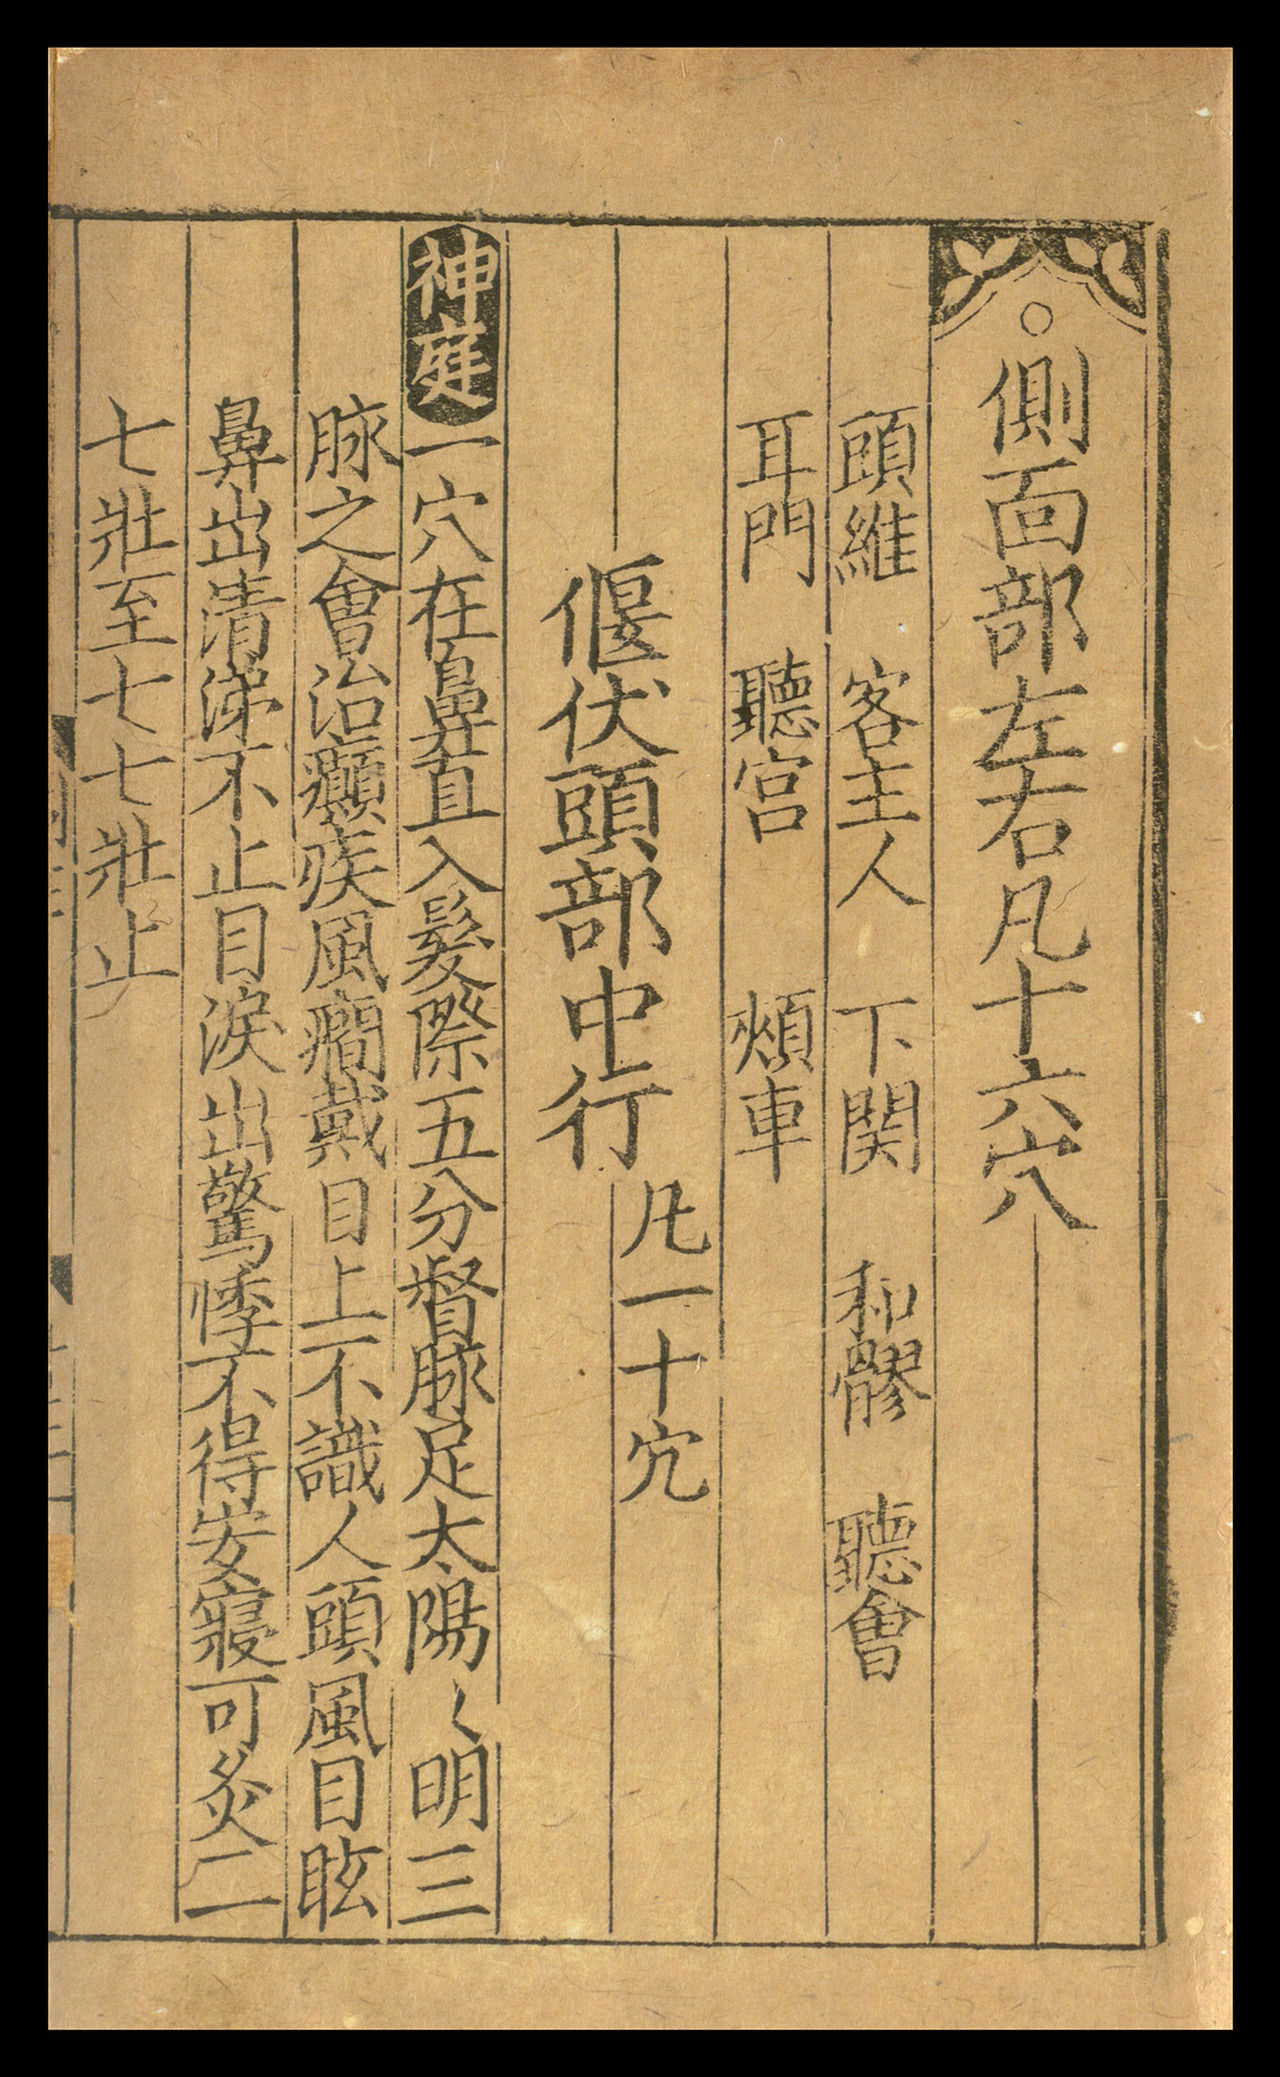 ○側面部左右凡十六穴
頭維 客主人 下関 和髎 聽會
耳門 聽宮 頰車
偃伏頭部中行 凡一十穴
神庭一穴在鼻直入髮際五分督脉足太陽〻明三
脉之會治癲疾風癇戴目上不識人頭風目眩
鼻出清涕不止目淚出驚悸不得安寢可灸二
七壯至七七壯止